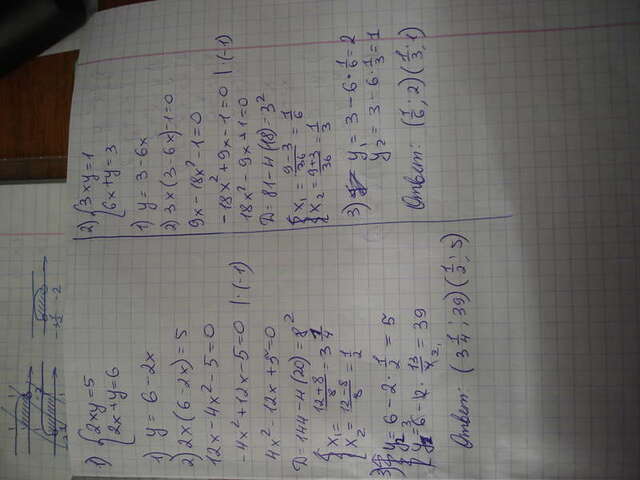 1) {2xy=5
{2x+y=6
1) y=6-2x
2) 2x(6-2x)=5
12x-4x²-5=0
-4x²+12x-5=0 |·(-1)
4x²-12x+5=0
D=144-4(20)=8²
{x₁=12+8/4=3 1/4
{x₂=12-8/8=1/2
3) y₂=6-2·1/2=5
y=6-2·13/4=39
Ответ: (3 1/4; 39)(1/2; 5)
2) {3xy=1
{6x+y=3
1) y=3-6x
2) 3x(3-6x)-1=0
9x-18x²-1=0
-18x²+9x-1=0 |·(-1)
18x²-9x+1=0
D=81-4(18)=3²
{x₁=9-3/36=1/6
{x₂=9+3/36=1/3
3) y₁=3-6·1/6=2
y₂=3-6·1/3=1
Ответ: (1/6; 2)(1/3; 1)